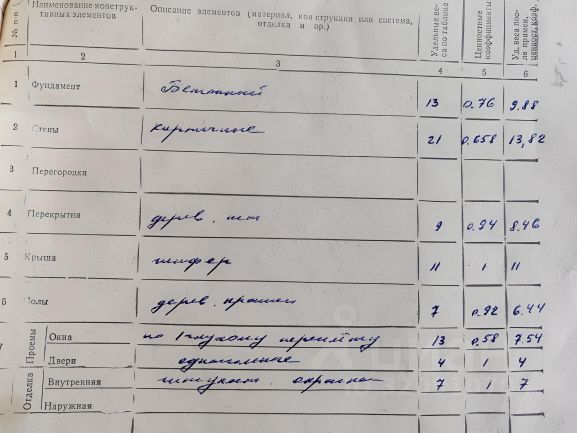 №№ п-п Наименование конструк-
тивных элементов Описание элементов (материал, конструкция или система,
отделка и пр.) Удельные ве-
са по таблице Ценностные
коэффициенты Уд. веса пос-
ле примен.
ценност. коэф.
1 2 3 4 5 6
1 Фундамент Бетонный 13 0.76 9.88
2 Стены кирпичные 21 0.658 13,82
3 Перегородки
4 Перекрытия дерев. 9 0.94 8.46
5 Крыша шифер 11 1 11
6 Полы дерев. крашен 7 0.92 6.44
7 Проемы Окна по 1 глухому переплёту 13 0,58 7.54
Двери однопольные 4 1 4
Отделка Внутренняя штукат. окраска 7 1 7
Наружная